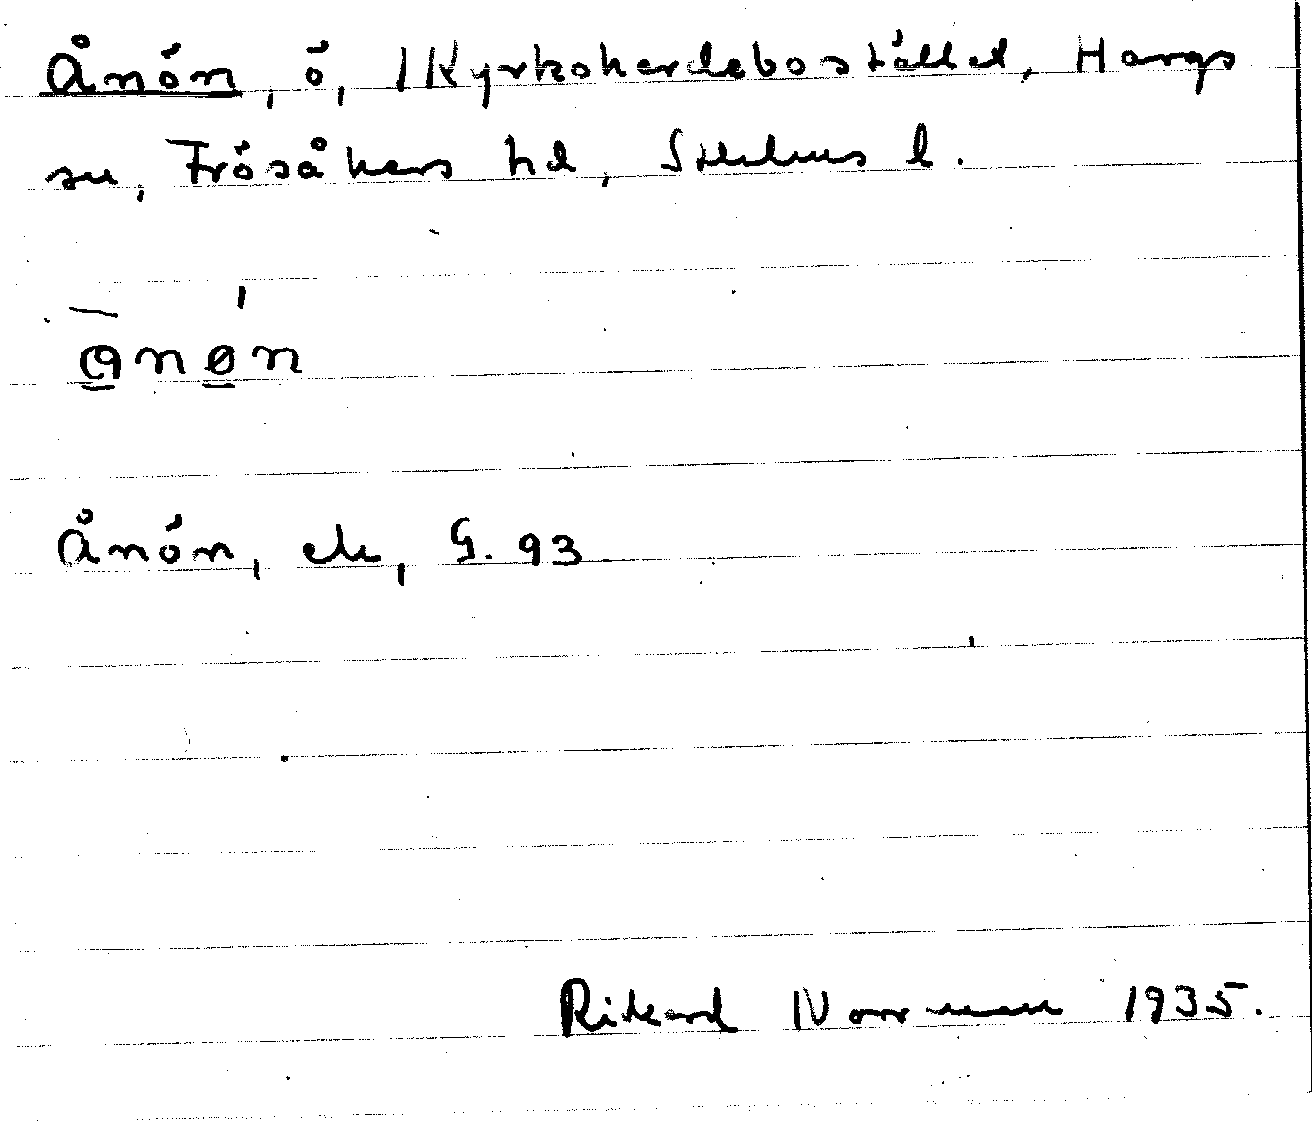 Ånön, ö, Kyrkoherdebostället, Hargs
sn, Frösåkers hd, Sthlms l.
ɑnøn
Ånön, ek, G. 93
Rikard Norrman 1935.